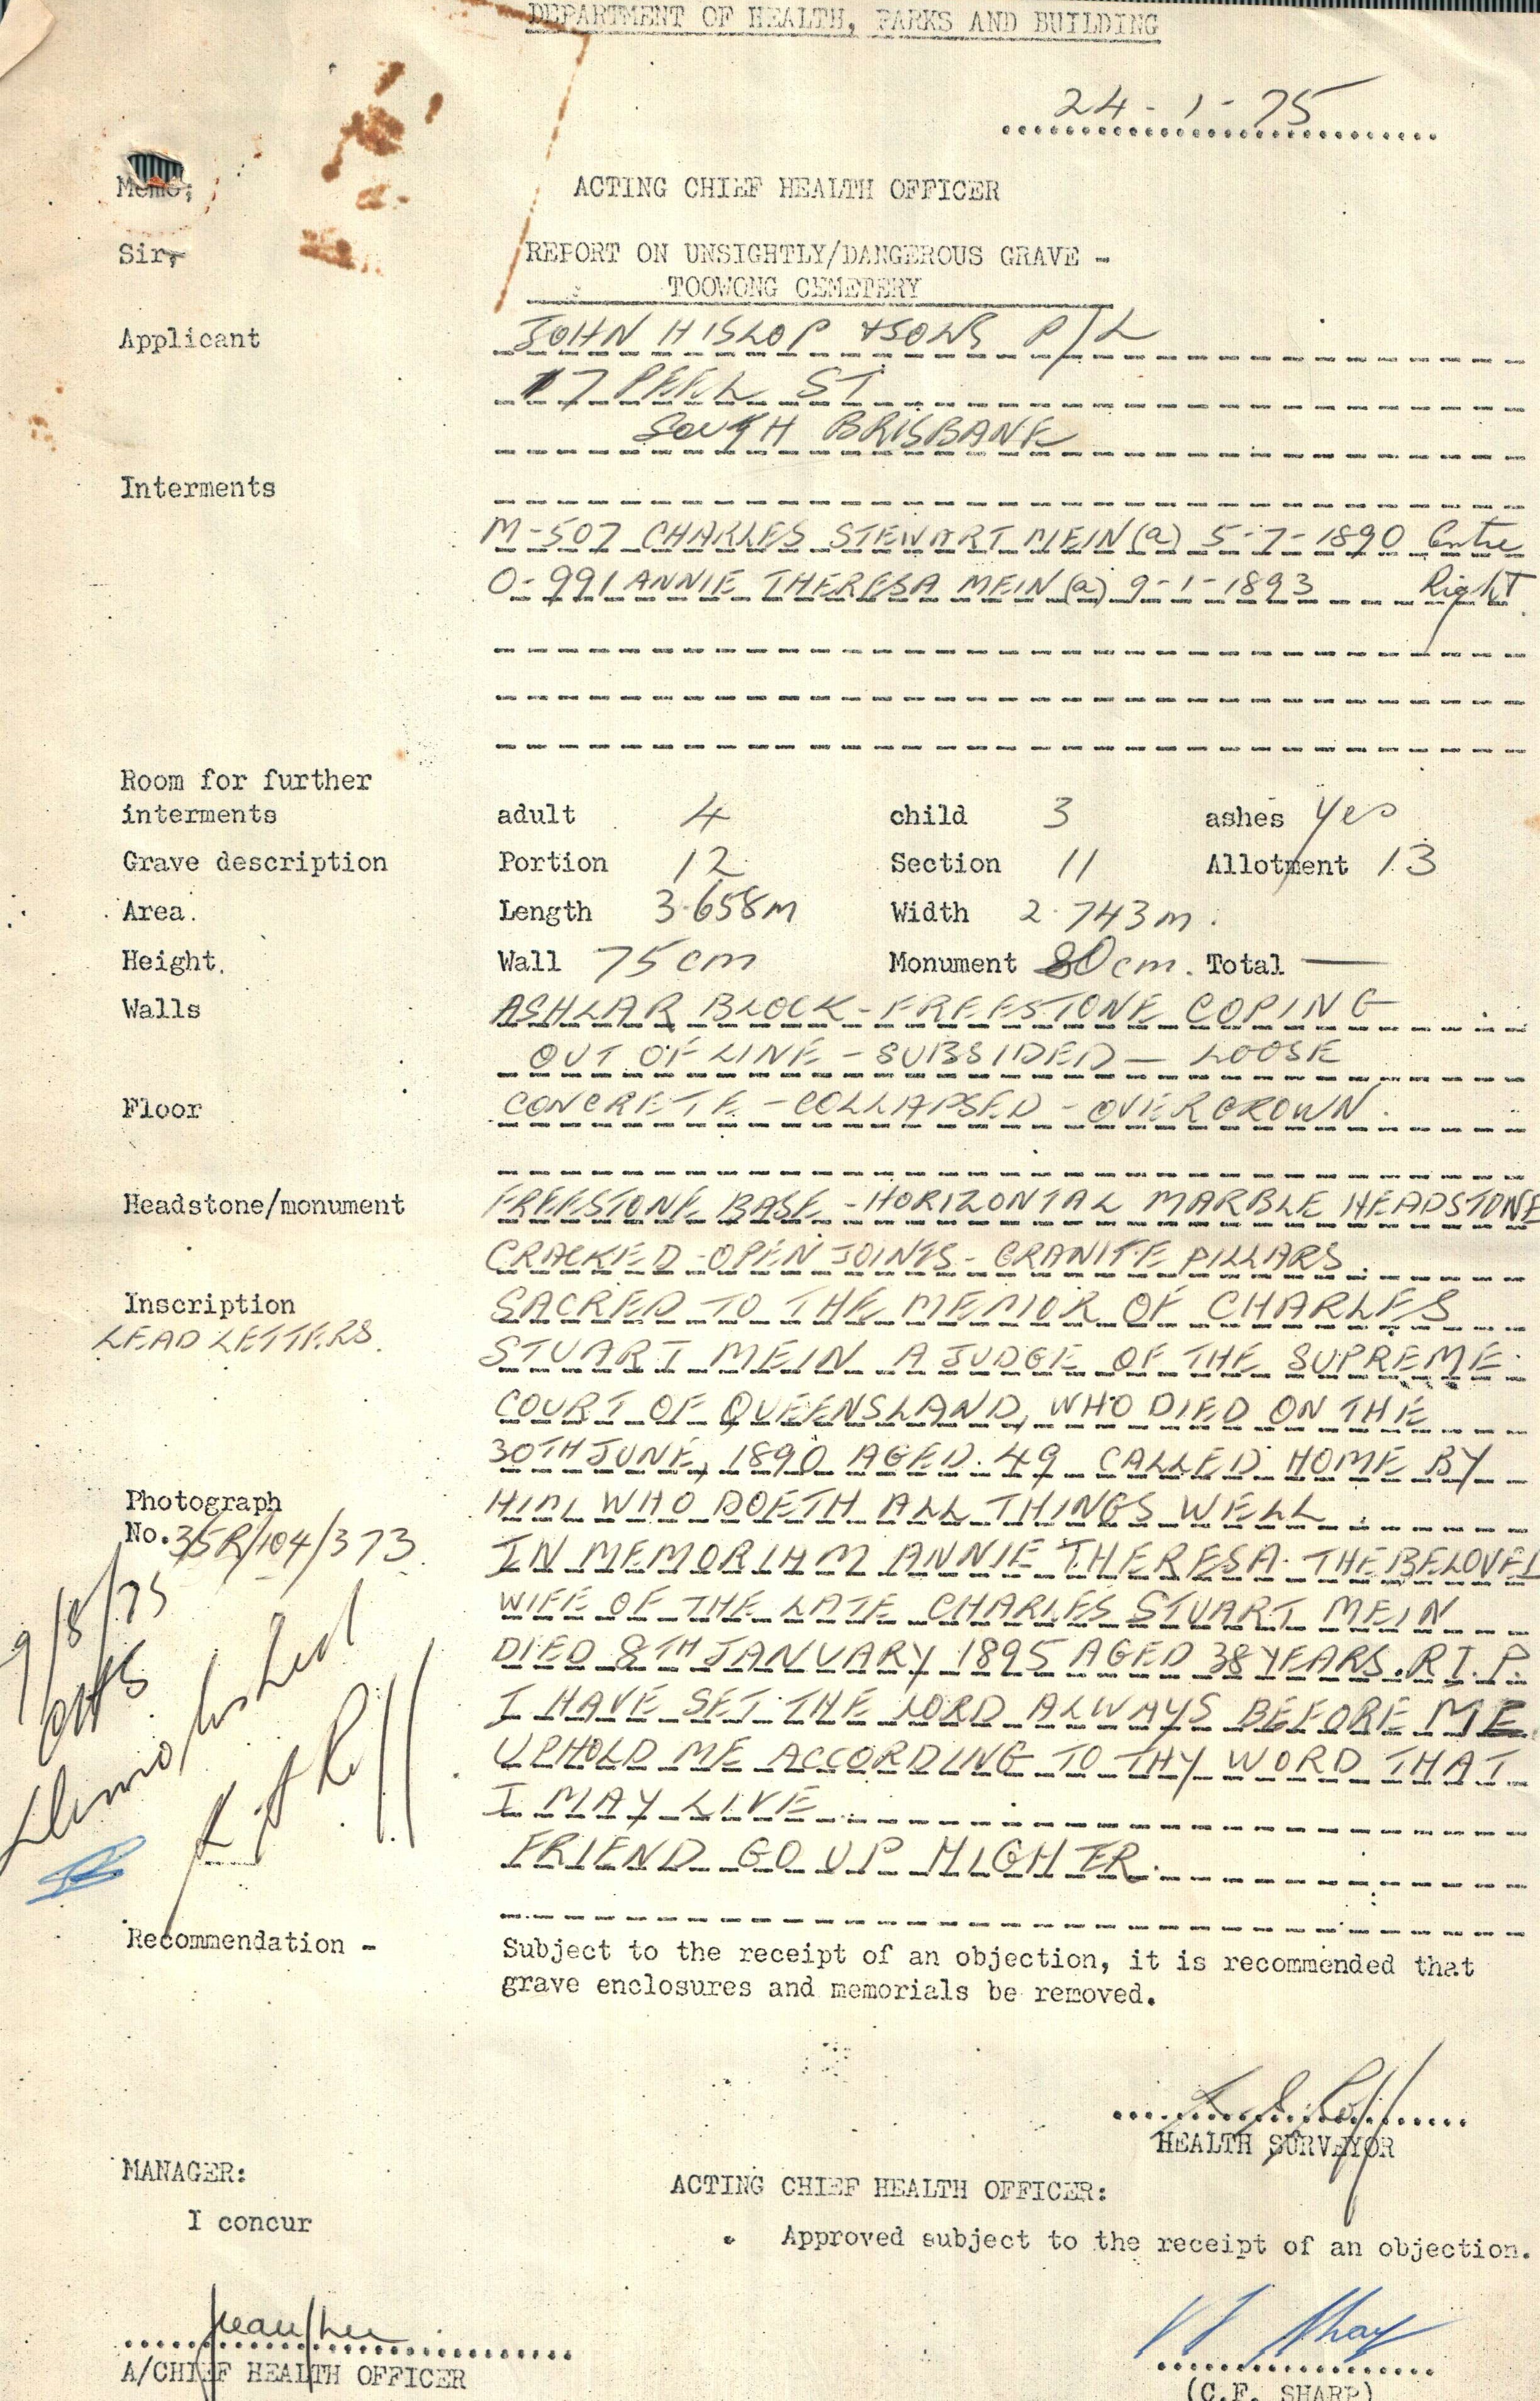 DEPARTMENT OF HEALTH, PARKS AND BUILDING
24-1-75
Memo;
ACTING CHIEF HEALTH OFFICER
Sir,
REPORT ON UNSIGHTLY/DANGEROUS GRAVE -
TOOWONG CEMETERY
Applicant JOHN HISLOP & SONS P/L
17 PEEL ST
SOUTH BRISBANE
Interments
M-507 CHARLES STEWART MEIN (a) 5-7-1890 Centre
O-991 ANNIE THERESA MEIN (a) 9-1-1893 Right
Room for further
interments adult 4 child 3 ashes yes
Grave description Portion 12 Section 11 Allotment 13
Area. Length 3.658m Width 2.743m.
Height. Wall 75cm Monument 80cm. Total —
Walls ASHLAR BLOCK - FREESTONE COPING
OUT OF LINE - SUBSIDED - LOOSE
Floor CONCRETE - COLLAPSED - OVERGROWN.
Headstone/monument FREESTONE BASE - HORIZONTAL MARBLE HEADSTONE
CRACKED - OPEN JOINTS - GRANITE PILLARS.
Inscription SACRED TO THE MEMOR OF CHARLES
LEAD LETTERS. STUART MEIN A JUDGE OF THE SUPREME
COURT OF QUEENSLAND, WHO DIED ON THE
30TH JUNE, 1890 AGED. 49 CALLED HOME BY
Photograph HIM, WHO DOETH ALL THINGS WELL.
No. 35R/104/373. IN MEMORIAM ANNIE THERESA. THE BELOVED
WIFE OF THE LATE CHARLES STUART MEIN
DIED 8TH JANUARY 1895 AGED 38 YEARS. R.I.P.
I HAVE SET THE LORD ALWAYS BEFORE ME
UPHOLD ME ACCORDING TO THY WORD THAT
I MAY LIVE
FRIEND GO UP HIGHER.
9/8/75
Demolished
Recommendation - Subject to the receipt of an objection, it is recommended that
grave enclosures and memorials be removed.
HEALTH SURVEYOR
MANAGER:
ACTING CHIEF HEALTH OFFICER:
I concur
Approved subject to the receipt of an objection.
A/CHIEF HEALTH OFFICER
(C.F. SHARP)